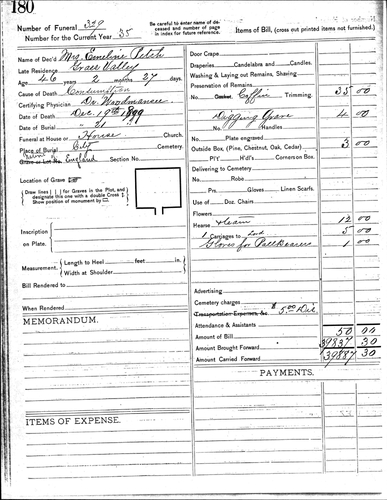 180
Number of Funeral 379
Number for the Current Year 35
Be careful to enter name of deceased and number of page in index for future reference.
Items of Bill, (cross out printed items not furnished.)
Name of Dec'd Mrs. Emeline Petch
Late Residence Grass Valley
Age 46 years 2 months 27 days.
Cause of Death Consumption
Certifying Physician Dr. Woodmansee
Date of Death Dec. 19th 1899
Date of Burial " 21
Funeral at House or House Church.
Place of Burial City Cemetery.
Grave or Lot No. England Section No.
Location of Grave
Draw lines [ ] for Graves in the Plot, and designate this one with a double Cross
Show position of monument by
Inscription on Plate.
Measurement. Length to Heel feet in.
Width at Shoulder
Bill Rendered to
When Rendered
MEMORANDUM.
ITEMS OF EXPENSE.
Door Crape
Draperies Candelabra and Candles.
Washing & Laying out Remains, Shaving
Preservation of Remains
No. Casket, Coffin Trimming. 35 00
Digging Grave 4 00
No. Handles
Plate engraved
Outside Box, (Pine, Chestnut, Oak, Cedar) 3 00
P'l'y H'd'l's Corners on Box.
Delivering to Cemetery
No. Robe
Pr. Gloves Linen Scarfs.
Use of Doz. Chair
Flowers
Hearse & team 12 00
1 Carriages to 5 00
Gloves for Pall Bearers 1 00
Advertising
Cemetery charges
Transportation Expenses, &c. $ 5.00 Dis
Attendance & Assistants
Amount of Bill 50 00
Amount Brought Forward 39837 30
Amount Carried Forward 39887 30
PAYMENTS.